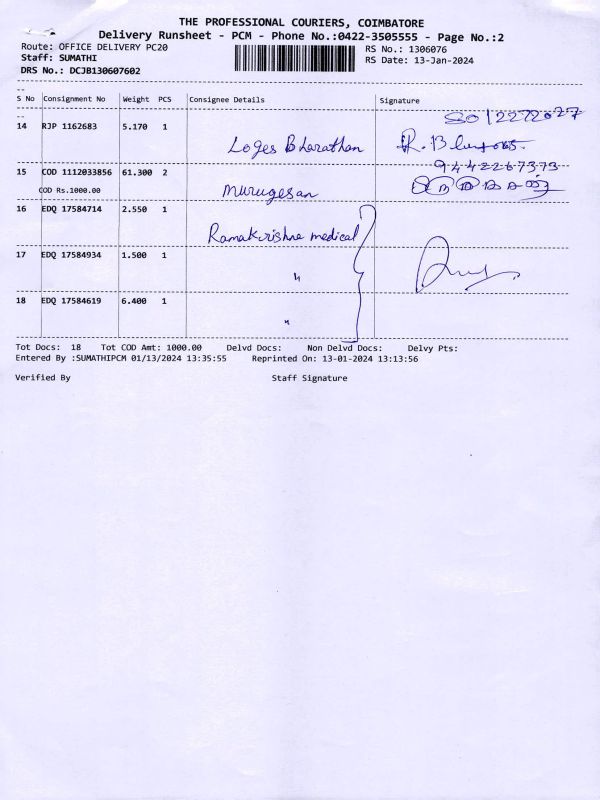 THE PROFESSIONAL COURIERS, COIMBATORE
Delivery Runsheet - PCM - Phone No.:0422-3505555 - Page No.:2
Route: OFFICE DELIVERY PC20
RS No.: 1306076
Staff: SUMATHI
RS Date: 13-Jan-2024
DRS No.: DCJB130607602
S No Consignment No Weight PCS Consignee Details Signature
14 RJP 1162683 5.170 1 Loges Bharathan
15 COD 1112033856 61.300 2 Murugesan 9442267373
COD Rs.1000.00
16 EDQ 17584714 2.550 1 Ramakrishna medical
17 EDQ 17584934 1.500 1 "
18 EDQ 17584619 6.400 1 "
Tot Docs: 18 Tot COD Amt: 1000.00 Delvd Docs: Non Delvd Docs: Delvy Pts:
Entered By :SUMATHIPCM 01/13/2024 13:35:55 Reprinted On: 13-01-2024 13:13:56
Verified By Staff Signature